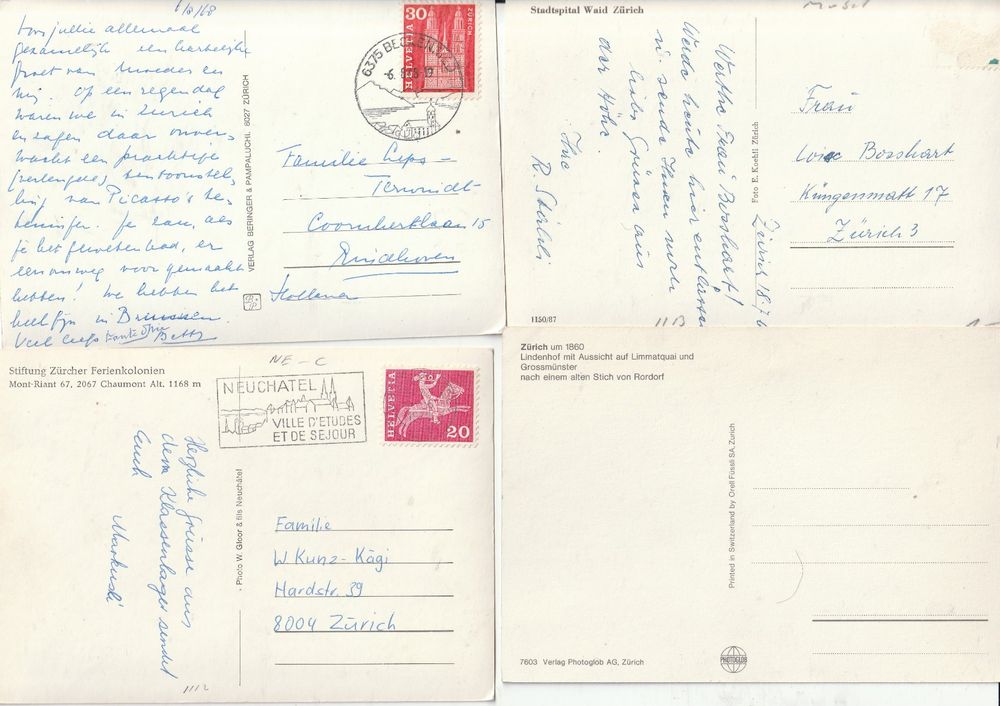 6/8/68
Voor jullie allemaal
gezamenlijk een hartelijke
groet van Moeder en
mij. Op een regendag
waren we in Zürich
en zagen daar onver-
wacht een prachtige
(verlengde) tentoonstel-
ling van Picasso's te-
keningen.
hebben! We hebben het
heel fijn in
Veel liefs Tante Betty
VERLAG BERINGER & PAMPALUCHI, 8027 ZÜRICH
30
ZÜRICH
HELVETIA
6375 BECKENRIED
-6. 8. 68
Familie Cups -
Termindt-
Coornhertlaan 15
Eindhoven
Holland
Stadtspital Waid Zürich
Zürich, 18.7.6
Werthe Frau Bosshart!
Werde heute hier entlassen
u. sende Ihnen noch
liebe Grüsse aus
der Höhe.
Ihre
R. Stirbli
Foto E. Koehli Zürich
Frau
Bosshart
Küngenmatt 17
Zürich 3
1150/87
11 B
NE - C
Stiftung Zürcher Ferienkolonien
Mont-Riant 67, 2067 Chaumont Alt. 1168 m
NEUCHATEL
VILLE D'ETUDES
ET DE SEJOUR
HELVETIA
20
Herzliche Grüsse aus
dem Klassenlager sendet
Euch
Markusli
Photo W. Gloor & fils Neuchâtel
Familie
W Kunz-Kägi
Hardstr. 39
8004 Zürich
1112
Zürich um 1860
Lindenhof mit Aussicht auf Limmatquai und
Grossmünster
nach einem alten Stich von Rordorf
Printed in Switzerland by Orell Füssli SA, Zurich
7603 Verlag Photoglob AG, Zürich
PHOTOGLOB